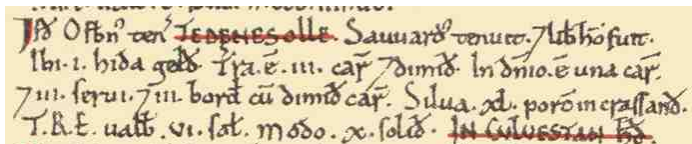 Isđ Osbn̄ ten̄ TEDENESOLLE. Sauuard̄ tenuit. ⁊ lib hō fuit.
Ibi .i. hida geld̄. Tr̄a .ē. iii. car̄ ⁊ dimid̄. In dn̄io .ē una car̄.
⁊ iii. serui. ⁊ iii. bord̄ cū dimid̄ car̄. Silua .xl. porc̄ incrassand̄.
T.R.E. ualb̄ .vi. sol̄. modo .x. solid̄. IN CULVESTAN HD̄.